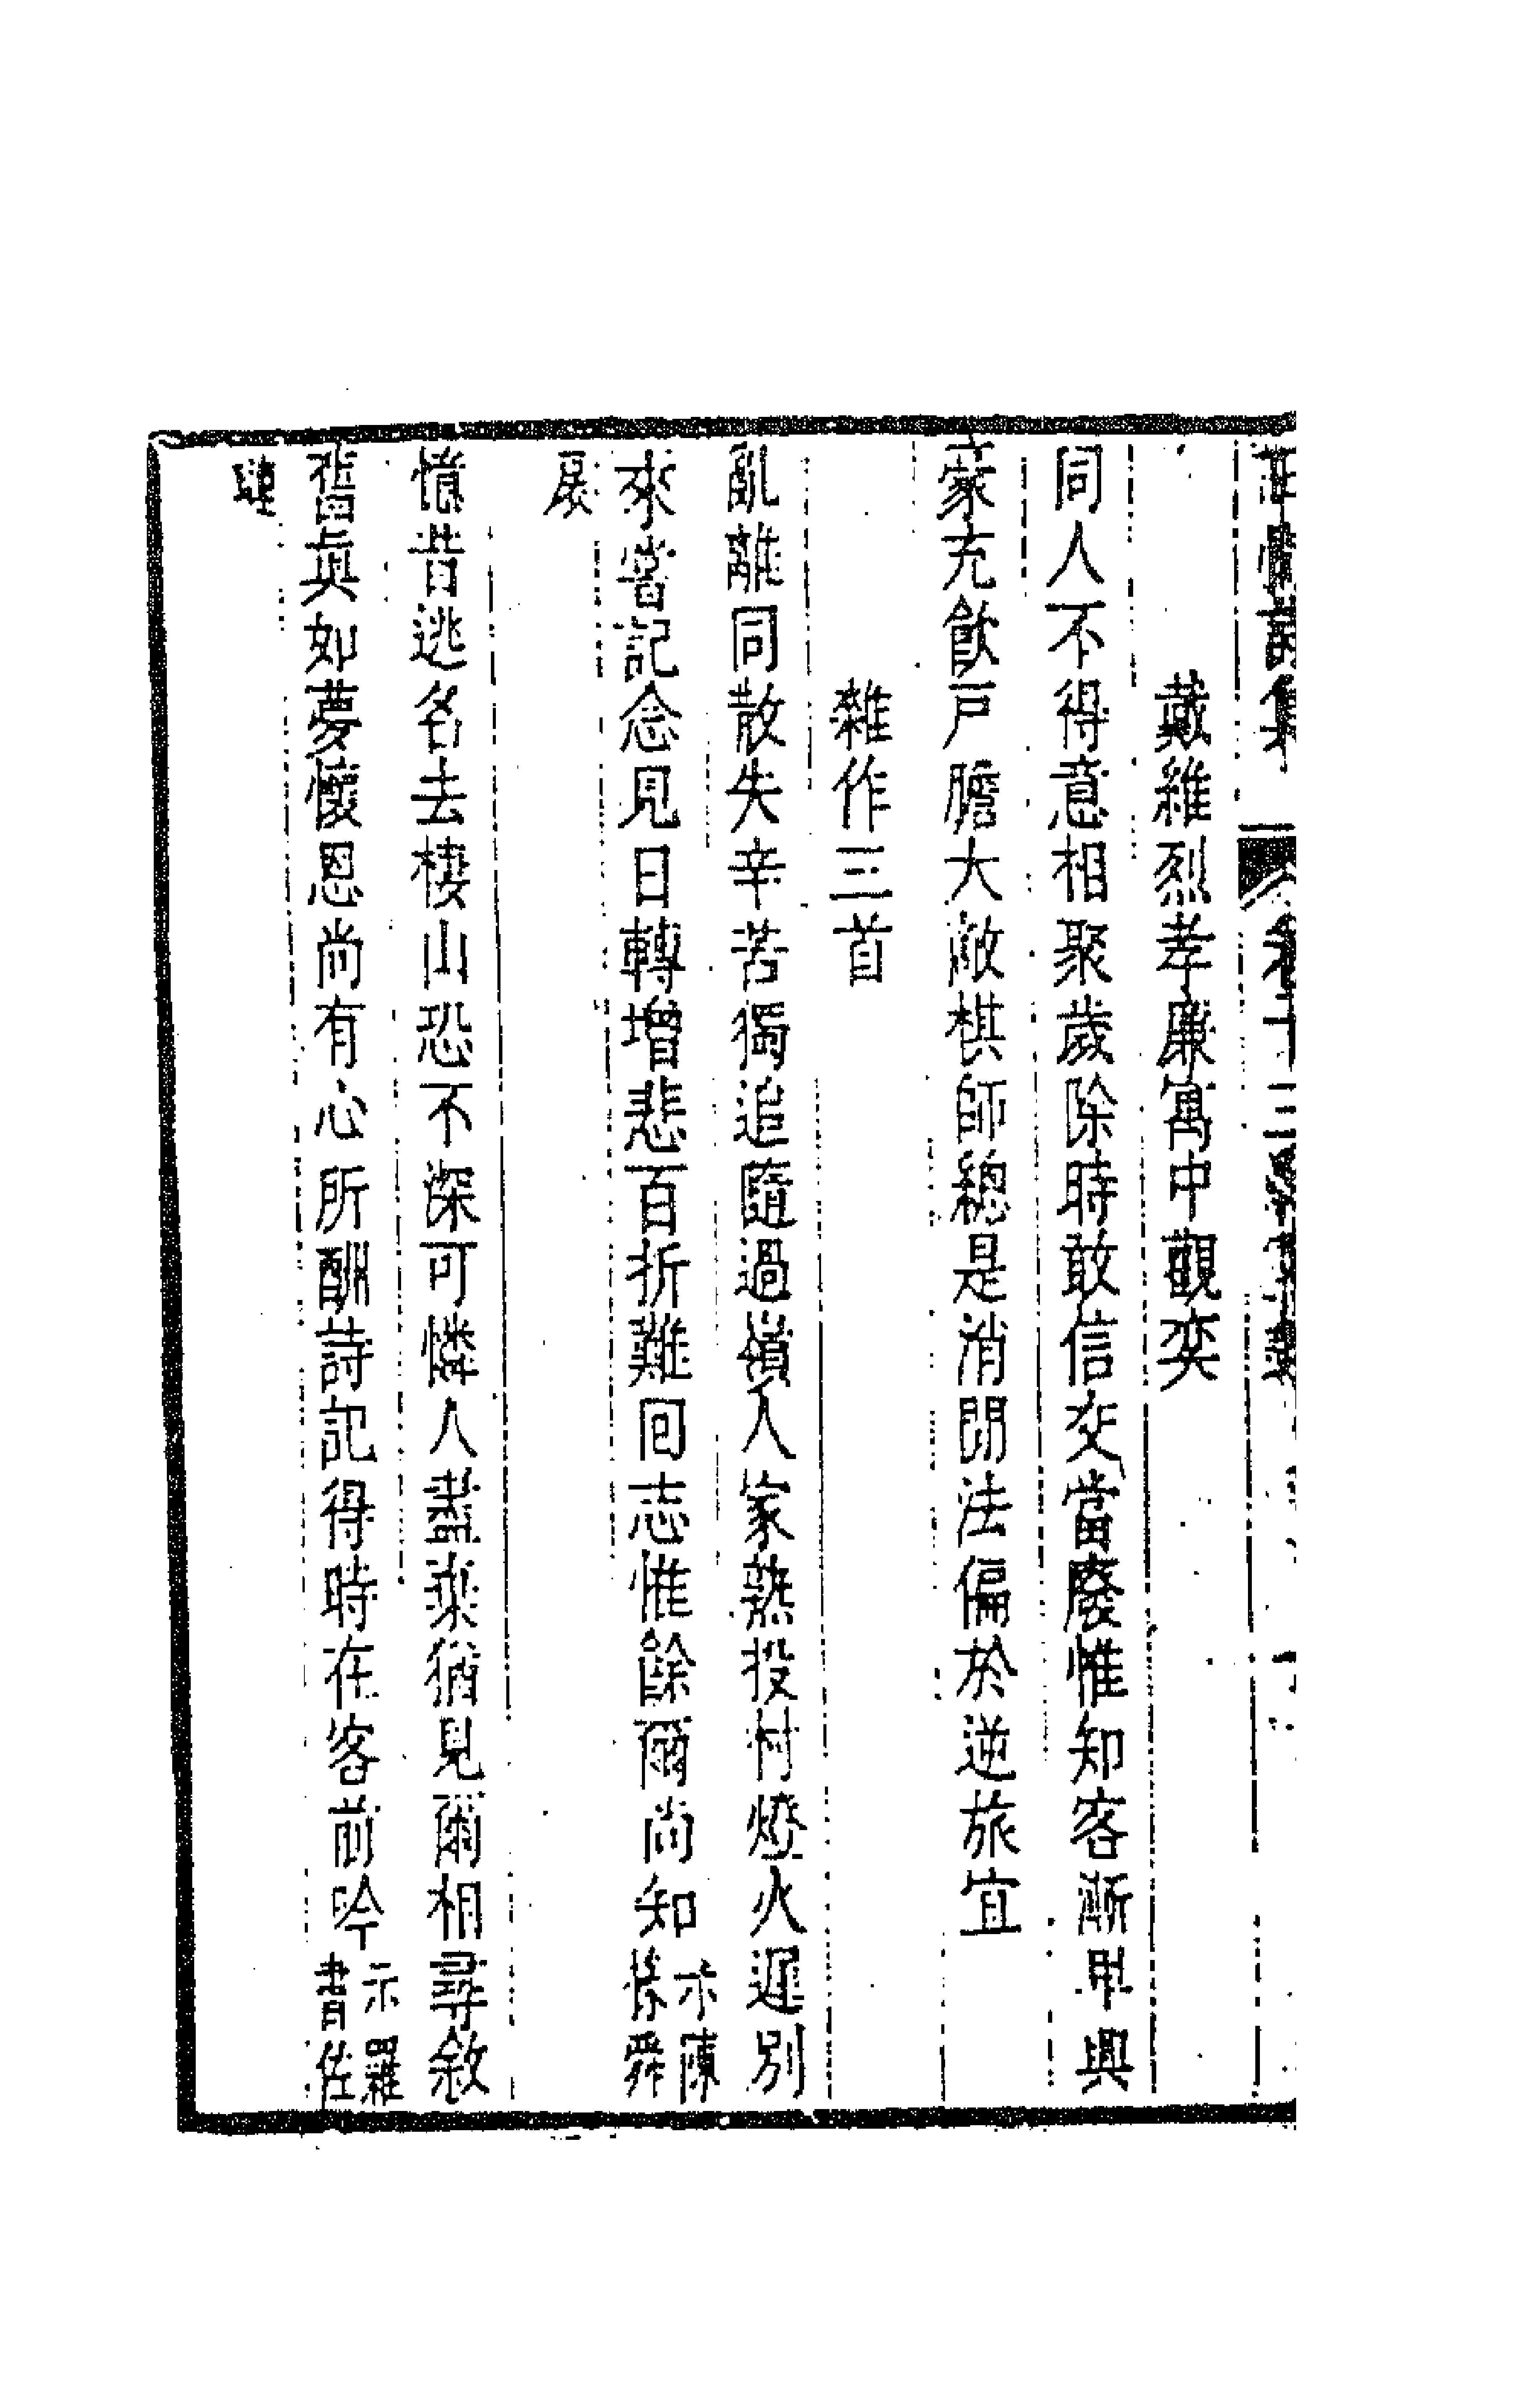 卷十三
戴維烈孝廉寓中觀奕
同人不得意相聚歲除時敢信交當廢惟知客漸卑興
豪充飲戶膽大敵棋師總是消閒法偏於逆旅宜
雜作三首
亂離同散失辛苦獨追隨過嶺人家熟投村燈火遲別
來嘗記念見日轉增悲百折難回志惟餘爾尚知示陳
孫舜
展
憶昔逃名去棲山恐不深可憐人盡棄猶見爾相尋敘
舊真如夢懷恩尚有心所酬詩記得時在客前吟示羅
書佐